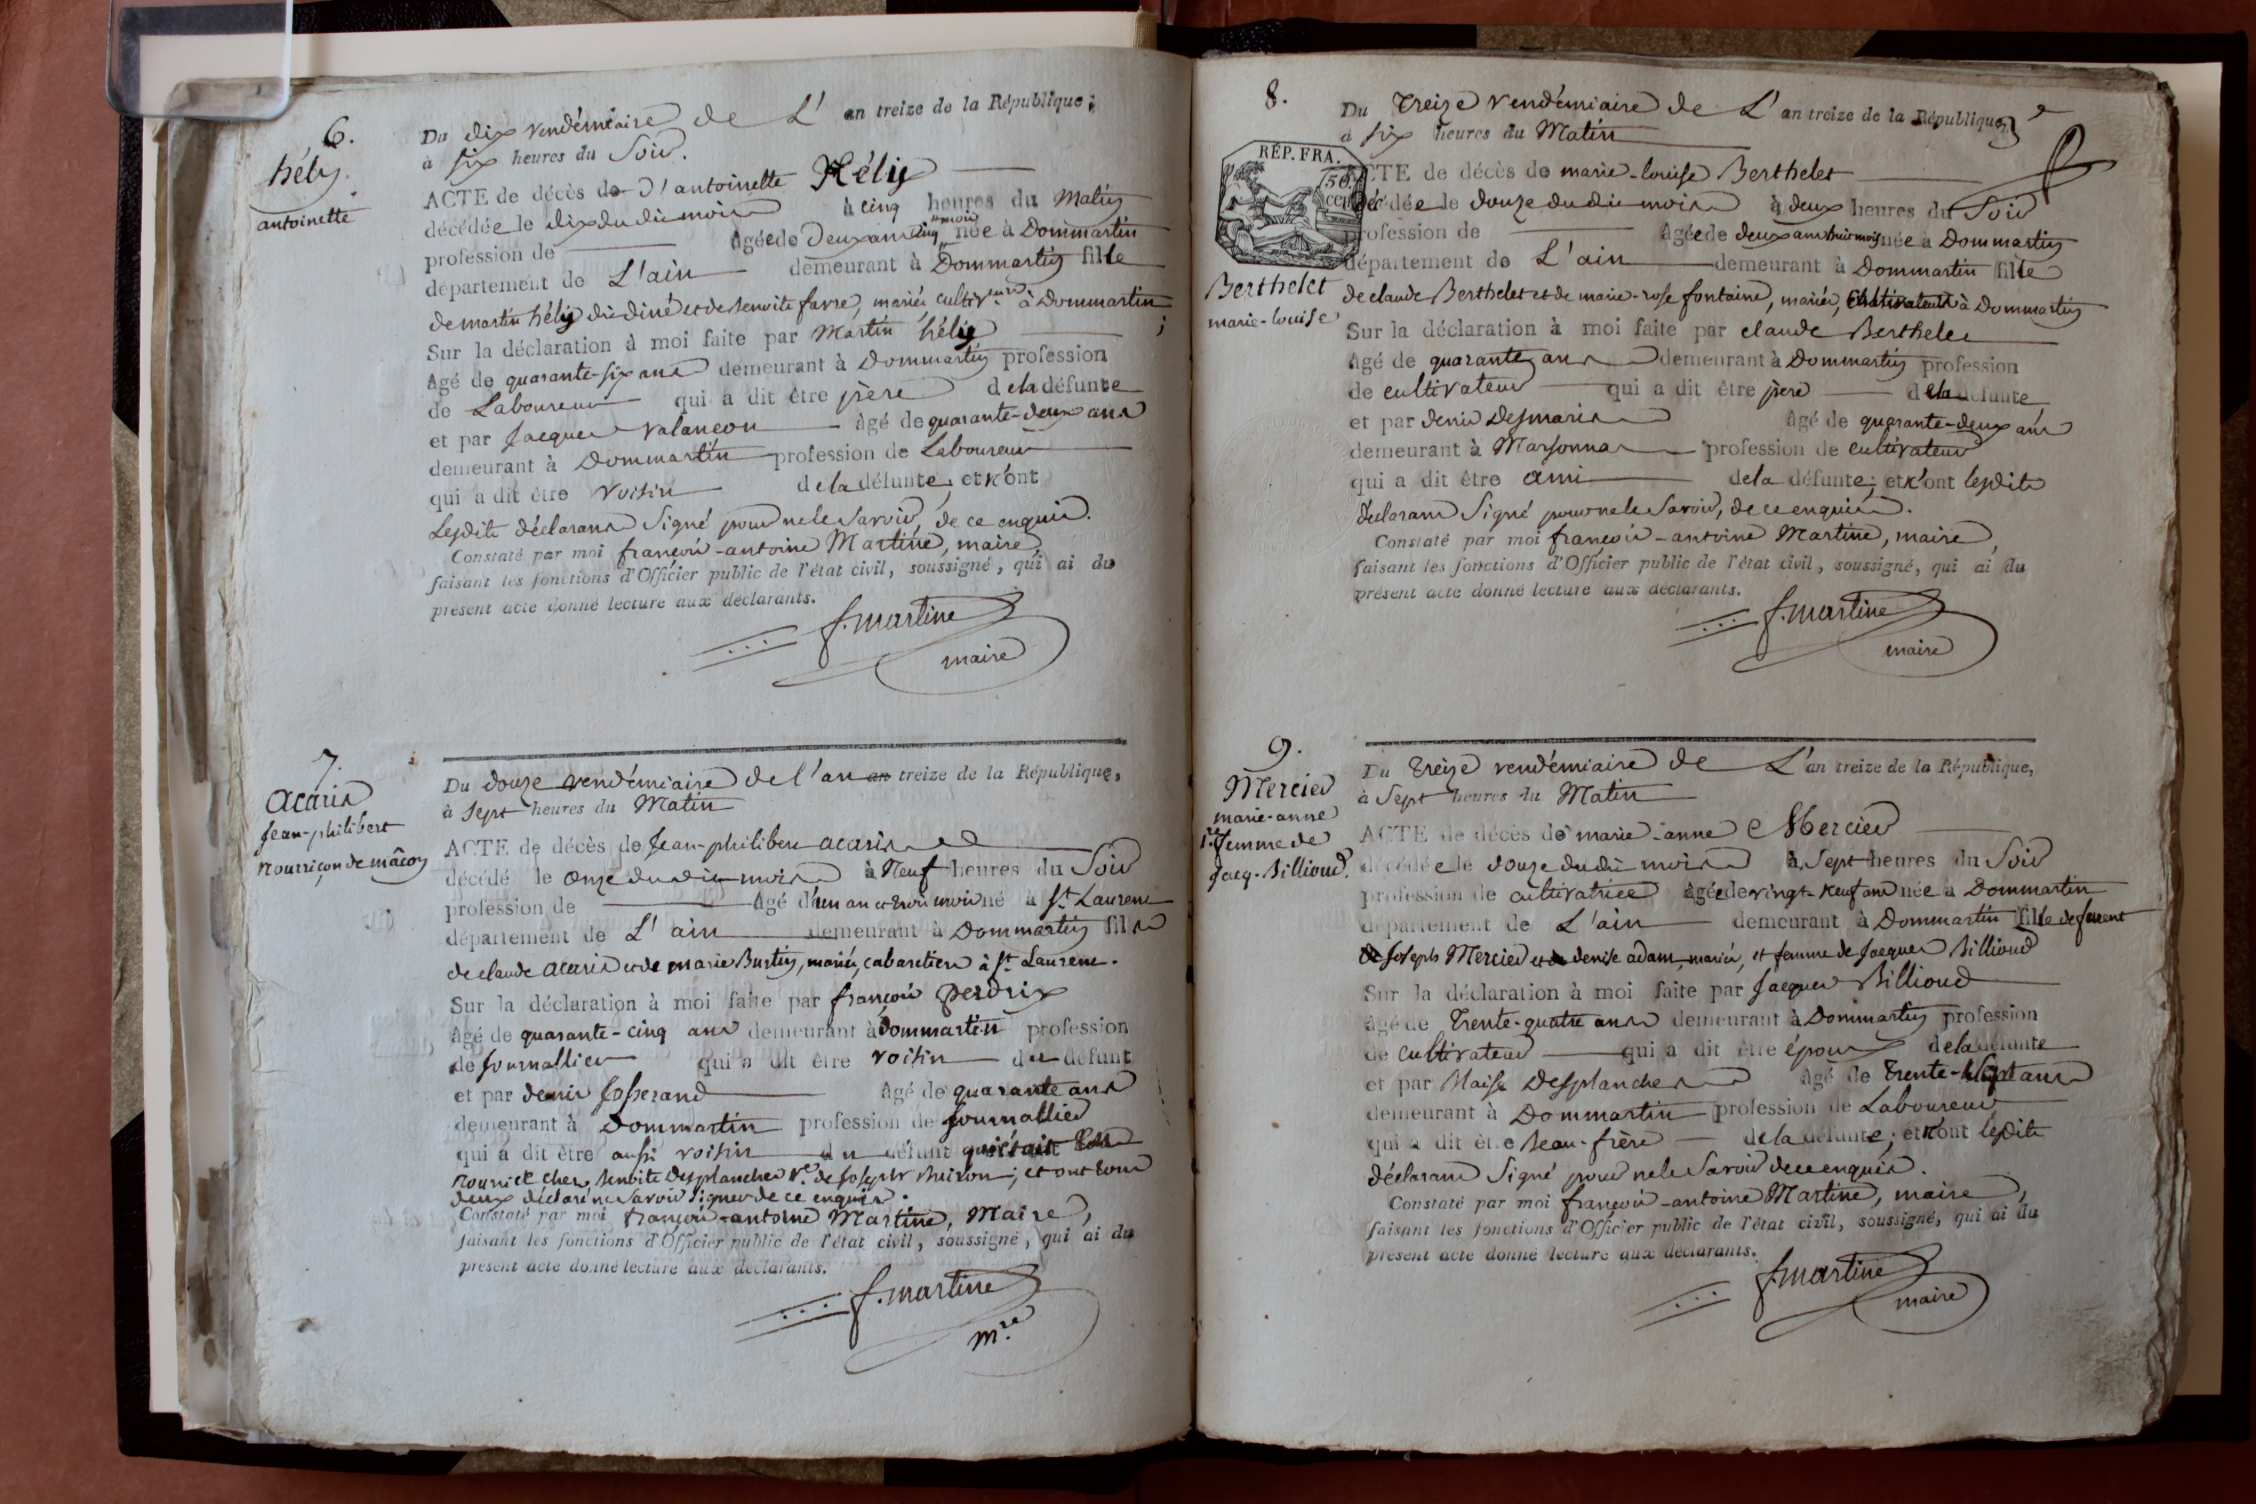 6.
hély
antoinette
Du dix vendémiaire de L'an treize de la République;
à six heures du Soir.
ACTE de décès de d'antoinette Hély
décédée le dix du dit mois à cinq heures du Matin
profession de âgée de deux ans cinq mois née à Dommartin
département de L'ain demeurant à Dommartin fille
de martin hély dit diné et de benoite favre, mariés cultivrs à Dommartin
Sur la déclaration à moi faite par Martin hély ;
âgé de quarante-six ans demeurant à Dommartin profession
de Laboureur qui a dit être père de la défunte
et par Jacques valançon âgé de quarante-deux ans
demeurant à Dommartin profession de Laboureur
qui a dit être Voisin de la défunte, et n'ont
Lesdits déclarans Signé pour ne le Savoir, de ce enquis.
Constaté par moi françois-antoine Martine, maire,
faisant les fonctions d'Officier public de l'état civil, soussigné, qui ai du
présent acte donné lecture aux déclarants.
f. martine
maire
7.
acaris
Jean-philibert
Nourriçon de mâcon
Du douze vendémiaire de l'an an treize de la République,
à sept heures du Matin
ACTE de décès de Jean-philibert acaris
décédé le onze du dit mois à Neuf heures du Soir
profession de âgé d'un an et trois mois né à St. Laurent
département de L'ain demeurant à Dommartin fils
de claude acaris et de marie Burtin, mariés, cabaretiers à St. Laurent.
Sur la déclaration à moi faite par françois perdrix
âgé de quarante-cinq ans demeurant à Dommartin profession
de Journallier qui a dit être voisin du défunt
et par denis Josserand âgé de quarante ans
demeurant à Dommartin profession de Journallier
qui a dit être aussi voisin du défunt qui était En
nourrice chez benoite Desplanches ve. de Joseph buiron; et ont tous
deux déclaré ne savoir signer de ce enquis.
Constaté par moi françois-antoine Martine, Maire,
faisant les fonctions d'Officier public de l'état civil, soussigné, qui ai du
présent acte donné lecture aux déclarants.
f. martine
mre
8.
3e
RÉP. FRA.
50
Berthelet
marie-louise
Du treize vendémiaire de L'an treize de la République,
à six heures du Matin
ACTE de décès de marie-louise Berthelet
décédée le douze du dit mois à deux heures du Soir
profession de âgée de deux ans huit mois née à Dommartin
département de L'ain demeurant à Dommartin fille
de claude Berthelet et de marie-rose fontaine, mariés, Cultivateurs à Dommartin
Sur la déclaration à moi faite par claude Berthelet
âgé de quarante ans demeurant à Dommartin profession
de cultivateur qui a dit être père de la défunte
et par denis Desmaris âgé de quarante-deux ans
demeurant à Marsonnas profession de cultivateur
qui a dit être ami de la défunte; et n'ont lesdits
déclarans Signé pour ne le Savoir, de ce enquis.
Constaté par moi françois-antoine Martine, maire,
faisant les fonctions d'Officier public de l'état civil, soussigné, qui ai du
présent acte donné lecture aux déclarants.
f. martine
maire
9.
Mercier
marie-anne
1re femme de
Jacq. Billioud.
Du treize vendémiaire de L'an treize de la République,
à Sept heures du Matin
ACTE de décès de marie-anne Mercier
décédée le douze du dit mois à Sept heures du Soir
profession de cultivatrice âgée de vingt-neuf ans née à Dommartin
département de L'ain demeurant à Dommartin fille de furent
Joseph Mercier et denise adam, mariés, et femme de Jacques Billioud
Sur la déclaration à moi faite par Jacques Billioud
âgé de trente-quatre ans demeurant à Dommartin profession
de cultivateur qui a dit être époux de la défunte
et par blaise Desplanches âgé de trente-sept ans
demeurant à Dommartin profession de Laboureur
qui a dit être beau-frère de la défunte; et n'ont lesdits
déclarans Signé pour ne le Savoir de ce enquis.
Constaté par moi françois-antoine Martine, maire,
faisant les fonctions d'Officier public de l'état civil, soussigné, qui ai du
présent acte donné lecture aux déclarants.
f. martine
maire